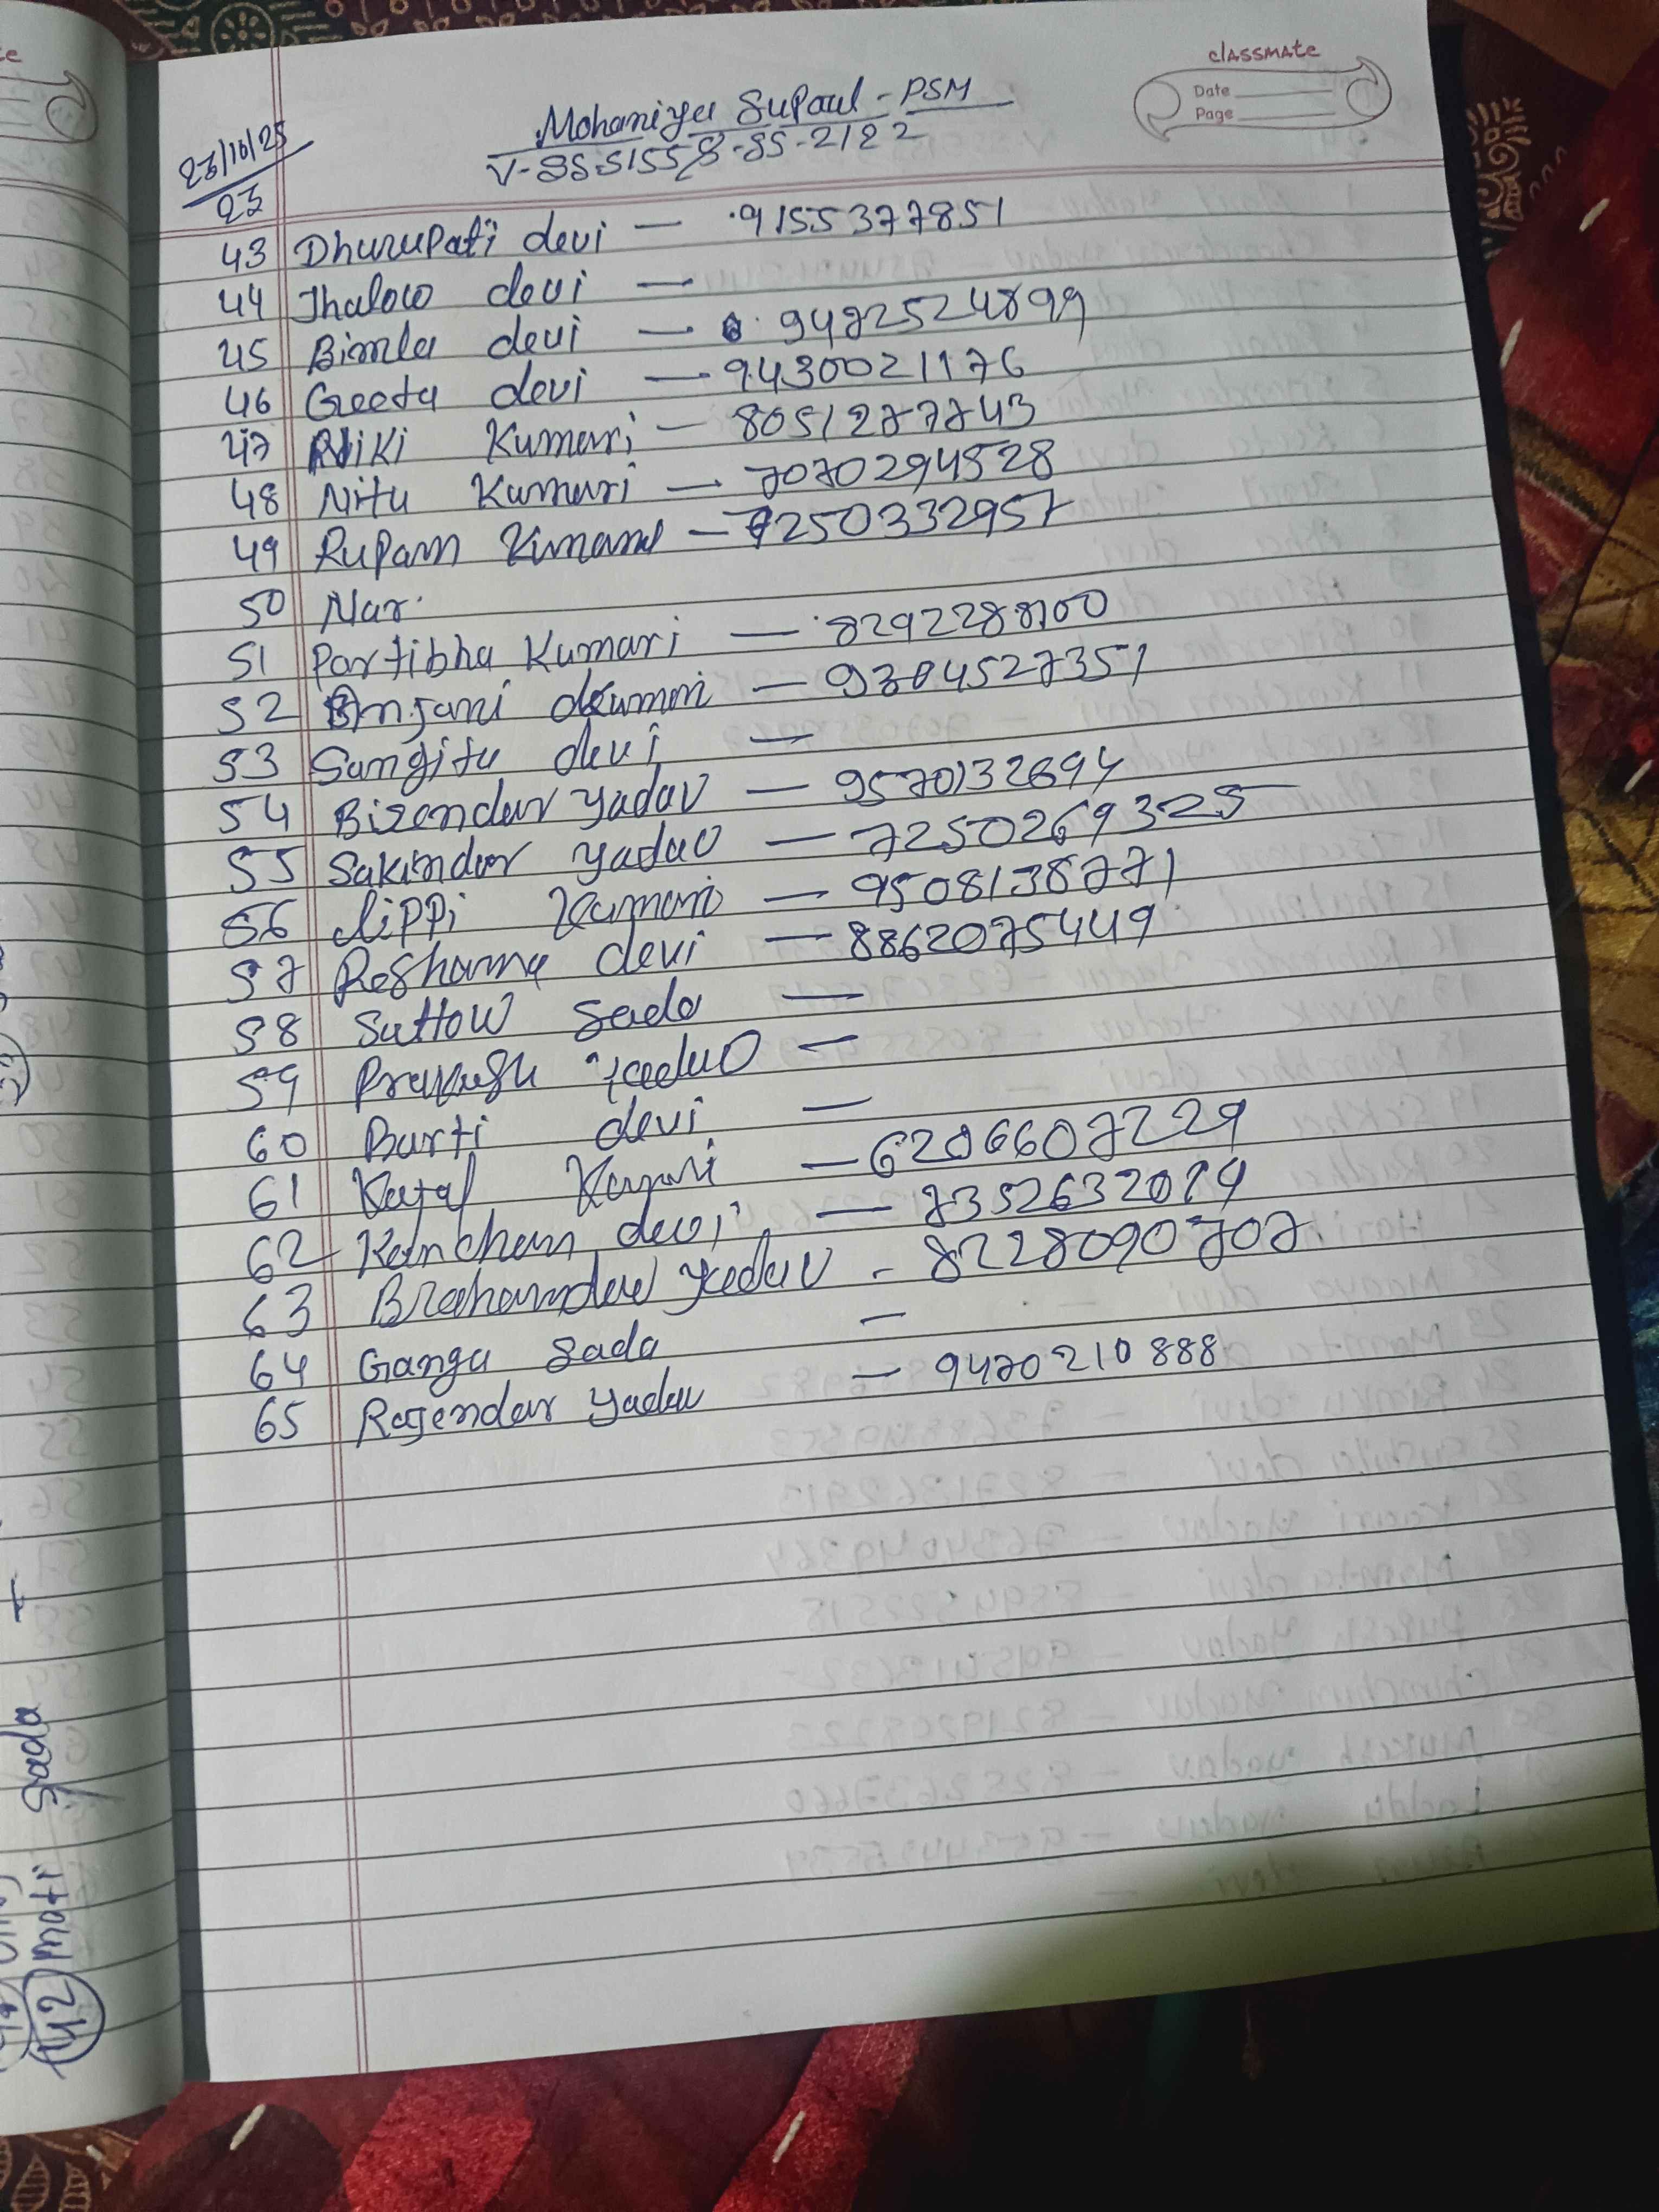 classmate
Date
Page
Mohaniya Supaul - PSM
23/10/25
23
43 Dhurupati devi — 9155377851
44 Jhalow devi —
45 Bimla devi — 9472524899
46 Geeta devi — 9430021176
47 Riki Kumari — 8051277743
48 Nitu Kumari — 7070294528
49 Rupam Kumari — 7250332957
50 Nar
51 Partibha Kumari — 8292288100
52 Anjani Kumari — 9304527351
53 Sangita devi —
54 Birendar yadav — 9570132694
55 Sakindar yadav — 7250269325
56 Lippi Kumari — 9508138771
57 Reshama devi — 8862075449
58 Suttow Sada —
59 Prakash yadav —
60 Barti devi —
61 Kajal Kumari — 6206607229
62 Kanchan devi — 7352632014
63 Brahamdev yadav - 8228090707
64 Ganga Sada —
65 Rajendar yadav — 9470210888
42 mati Sada